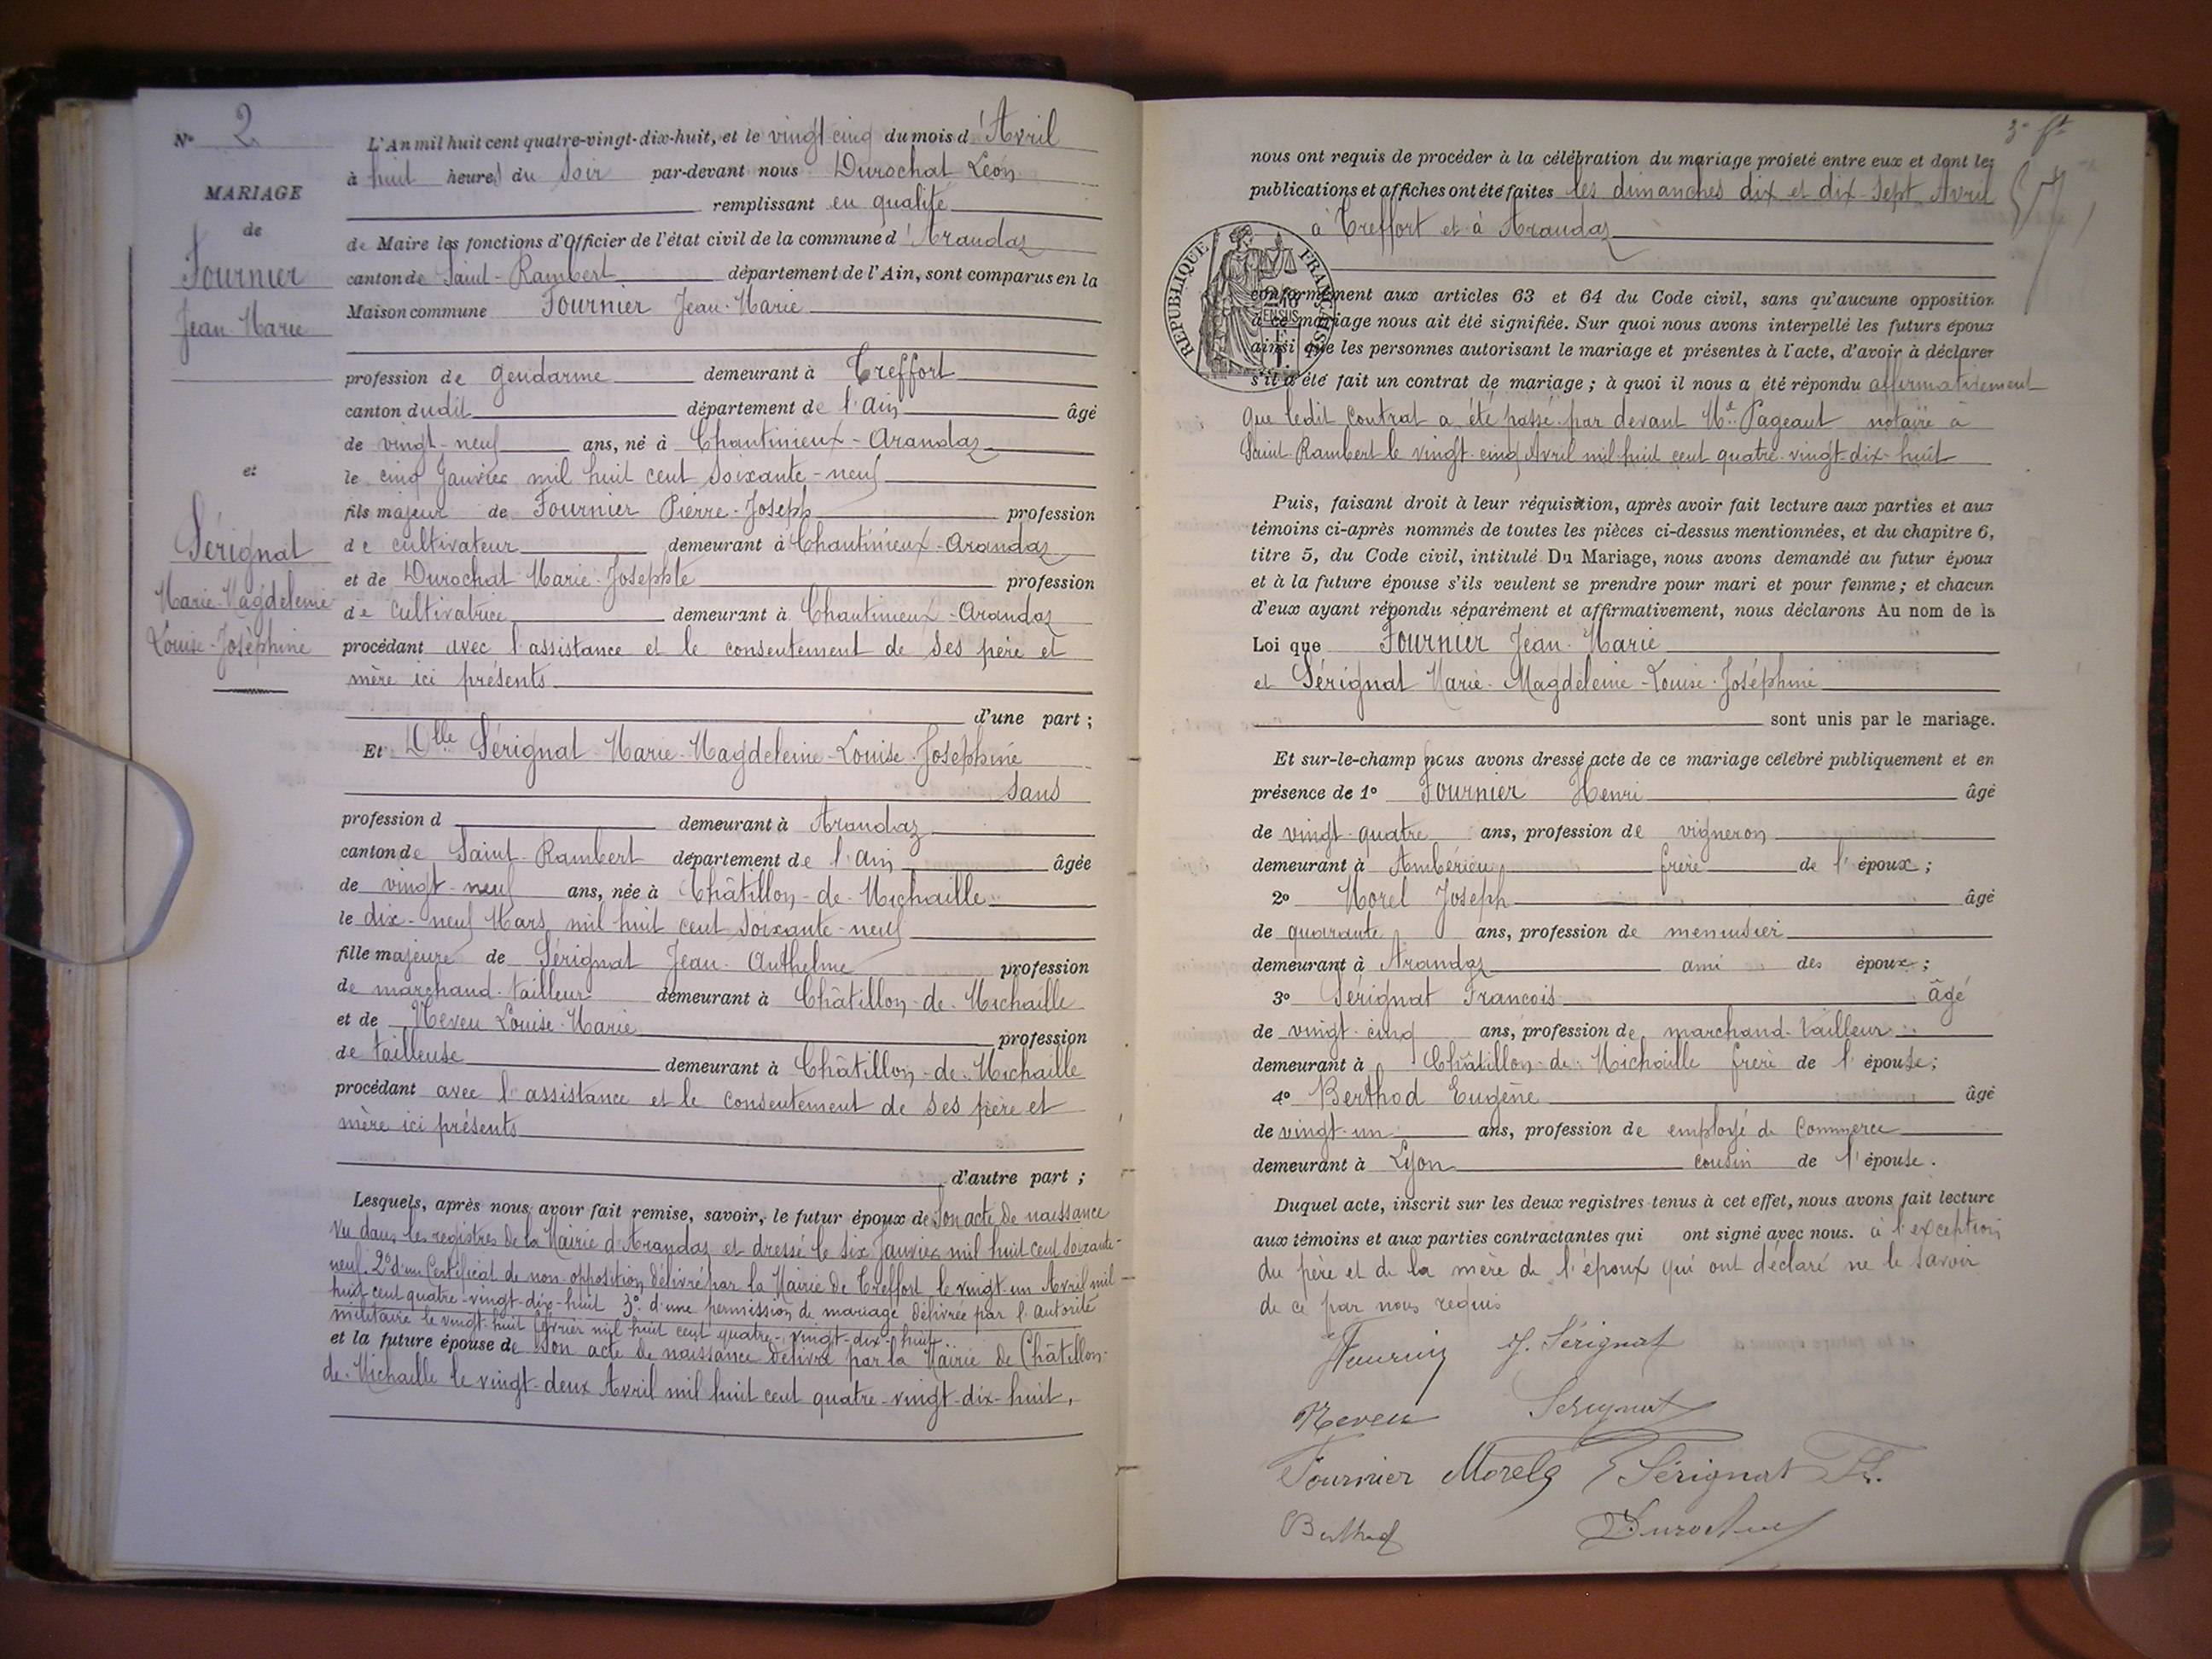 N° 2
MARIAGE
de
Fournier
Jean-Marie
et
Sérignat
Marie-Magdeleine
Louise-Joséphine
L'An mil huit cent quatre-vingt-dix-huit, et le vingt-cinq du mois d'Avril
à huit heures du Soir par-devant nous Durochat Léon
remplissant en qualité
de Maire les fonctions d'Officier de l'état civil de la commune d'Arandaz
canton de Saint-Rambert département de l'Ain, sont comparus en la
Maison commune Fournier Jean-Marie
profession de gendarme demeurant à Treffort
canton dudit département de l'Ain âgé
de vingt-neuf ans, né à Chantinieux-Arandaz
le cinq Janvier mil huit cent soixante-neuf
fils majeur de Fournier Pierre-Joseph profession
de cultivateur demeurant à Chantinieux-Arandaz
et de Durochat Marie-Josephte profession
de cultivatrice demeurant à Chantinieux-Arandaz
procédant avec l'assistance et le consentement de ses père et
mère ici présents
d'une part ;
Et Dlle Sérignat Marie-Magdeleine-Louise-Joséphine
sans
profession d demeurant à Arandaz
canton de Saint-Rambert département de l'Ain âgée
de vingt-neuf ans, née à Châtillon-de-Michaille
le dix-neuf Mars mil huit cent soixante-neuf
fille majeure de Sérignat Jean-Anthelme profession
de marchand-tailleur demeurant à Châtillon-de-Michaille
et de Neveu Louise-Marie profession
de tailleuse demeurant à Châtillon-de-Michaille
procédant avec l'assistance et le consentement de ses père et
mère ici présents
d'autre part ;
Lesquels, après nous avoir fait remise, savoir, le futur époux de son acte de naissance
vu dans les registres de la Mairie d'Arandaz et dressé le six Janvier mil huit cent soixante-
neuf. 2° d'un Certificat de non-opposition délivré par la Mairie de Treffort le vingt-un Avril mil
huit cent quatre-vingt-dix-huit 3° d'une permission de mariage délivrée par l'autorité
militaire le vingt-huit février mil huit cent quatre-vingt-dix-huit
et la future épouse de son acte de naissance délivré par la Mairie de Châtillon-
de-Michaille le vingt-deux Avril mil huit cent quatre-vingt-dix-huit.
3e ft
nous ont requis de procéder à la célébration du mariage projeté entre eux et dont les
publications et affiches ont été faites les dimanches dix et dix-sept Avril
à Treffort et à Arandaz
RÉPUBLIQUE FRANÇAISE
conformément aux articles 63 et 64 du Code civil, sans qu'aucune opposition
à ce mariage nous ait été signifiée. Sur quoi nous avons interpellé les futurs époux
ainsi que les personnes autorisant le mariage et présentes à l'acte, d'avoir à déclarer
s'il a été fait un contrat de mariage ; à quoi il nous a été répondu affirmativement
que ledit contrat a été passé par devant Me Pageaut notaire à
Saint Rambert le vingt-cinq Avril mil huit cent quatre-vingt-dix-huit
Puis, faisant droit à leur réquisition, après avoir fait lecture aux parties et aux
témoins ci-après nommés de toutes les pièces ci-dessus mentionnées, et du chapitre 6,
titre 5, du Code civil, intitulé Du Mariage, nous avons demandé au futur époux
et à la future épouse s'ils veulent se prendre pour mari et pour femme ; et chacun
d'eux ayant répondu séparément et affirmativement, nous déclarons Au nom de la
Loi que Fournier Jean-Marie
et Sérignat Marie-Magdeleine-Louise-Joséphine
sont unis par le mariage.
Et sur-le-champ nous avons dressé acte de ce mariage célébré publiquement et en
présence de 1° Fournier Henri âgé
de vingt-quatre ans, profession de vigneron
demeurant à Ambérieu frère de l'époux ;
2° Morel Joseph âgé
de quarante ans, profession de menuisier
demeurant à Arandaz ami des époux ;
3° Sérignat François âgé
de vingt-cinq ans, profession de marchand-tailleur
demeurant à Châtillon-de-Michaille frère de l'épouse ;
4° Berthod Eugène âgé
de vingt-un ans, profession de employé de Commerce
demeurant à Lyon cousin de l'épouse.
Duquel acte, inscrit sur les deux registres tenus à cet effet, nous avons fait lecture
aux témoins et aux parties contractantes qui ont signé avec nous. à l'exception
du père et de la mère de l'époux qui ont déclaré ne le savoir
de ce par nous requis
J. Sérignat
Neveu Sérignat
Fournier Morel Sérignat Fs.
Berthod Durochat